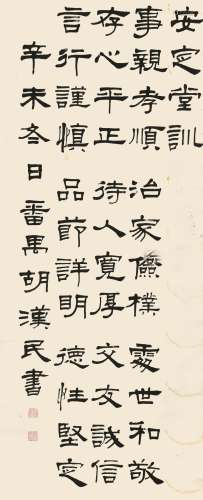 安定堂訓
事親孝順 治家儉樸 處世和敬
存心平正 待人寬厚 交友誠信
言行謹慎 品節詳明 德性堅定
辛未冬日番禺胡漢民書